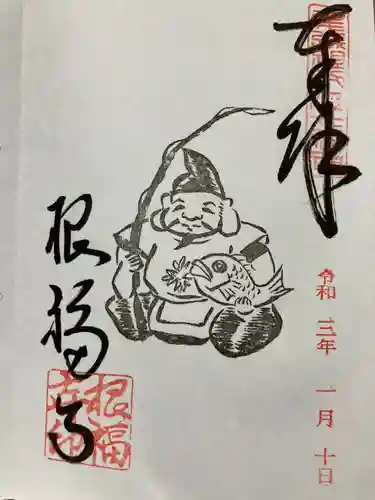 奉拝
令和三年 一月 十日
根福寺
根福
寺印